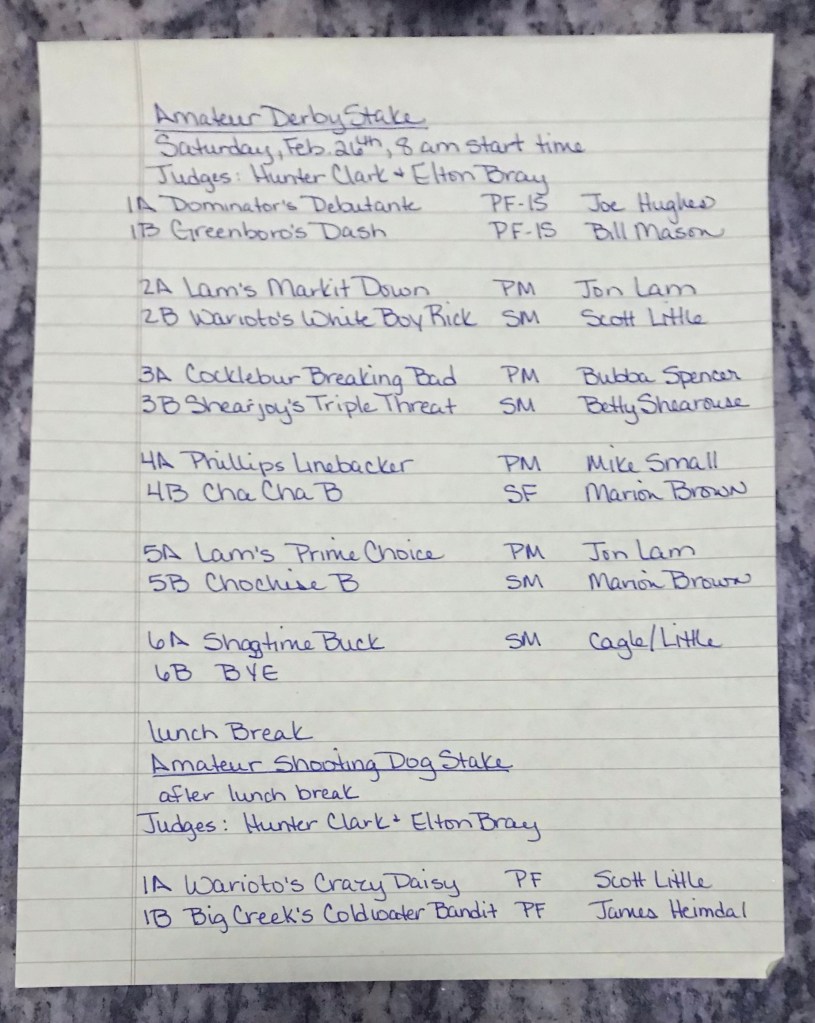 Amateur Derby Stake
Saturday, Feb. 26th, 8 am start time
Judges: Hunter Clark + Elton Bray
1A Dominator's Debutante PF-IS Joe Hughes
1B Greenboro's Dash PF-IS Bill Mason
2A Lam's Markit Down PM Jon Lam
2B Warioto's White Boy Rick SM Scott Little
3A Cocklebur Breaking Bad PM Bubba Spencer
3B Shearjoy's Triple Threat SM Betty Shearouse
4A Phillips Linebacker PM Mike Small
4B Cha Cha B SF Marion Brown
5A Lam's Prime Choice PM Jon Lam
5B Chochise B SM Marion Brown
6A Shagtime Buck SM Cagle/Little
6B BYE
Lunch Break
Amateur Shooting Dog Stake
after lunch break
Judges: Hunter Clark + Elton Bray
1A Warioto's Crazy Daisy PF Scott Little
1B Big Creek's Coldwater Bandit PF James Heimdal